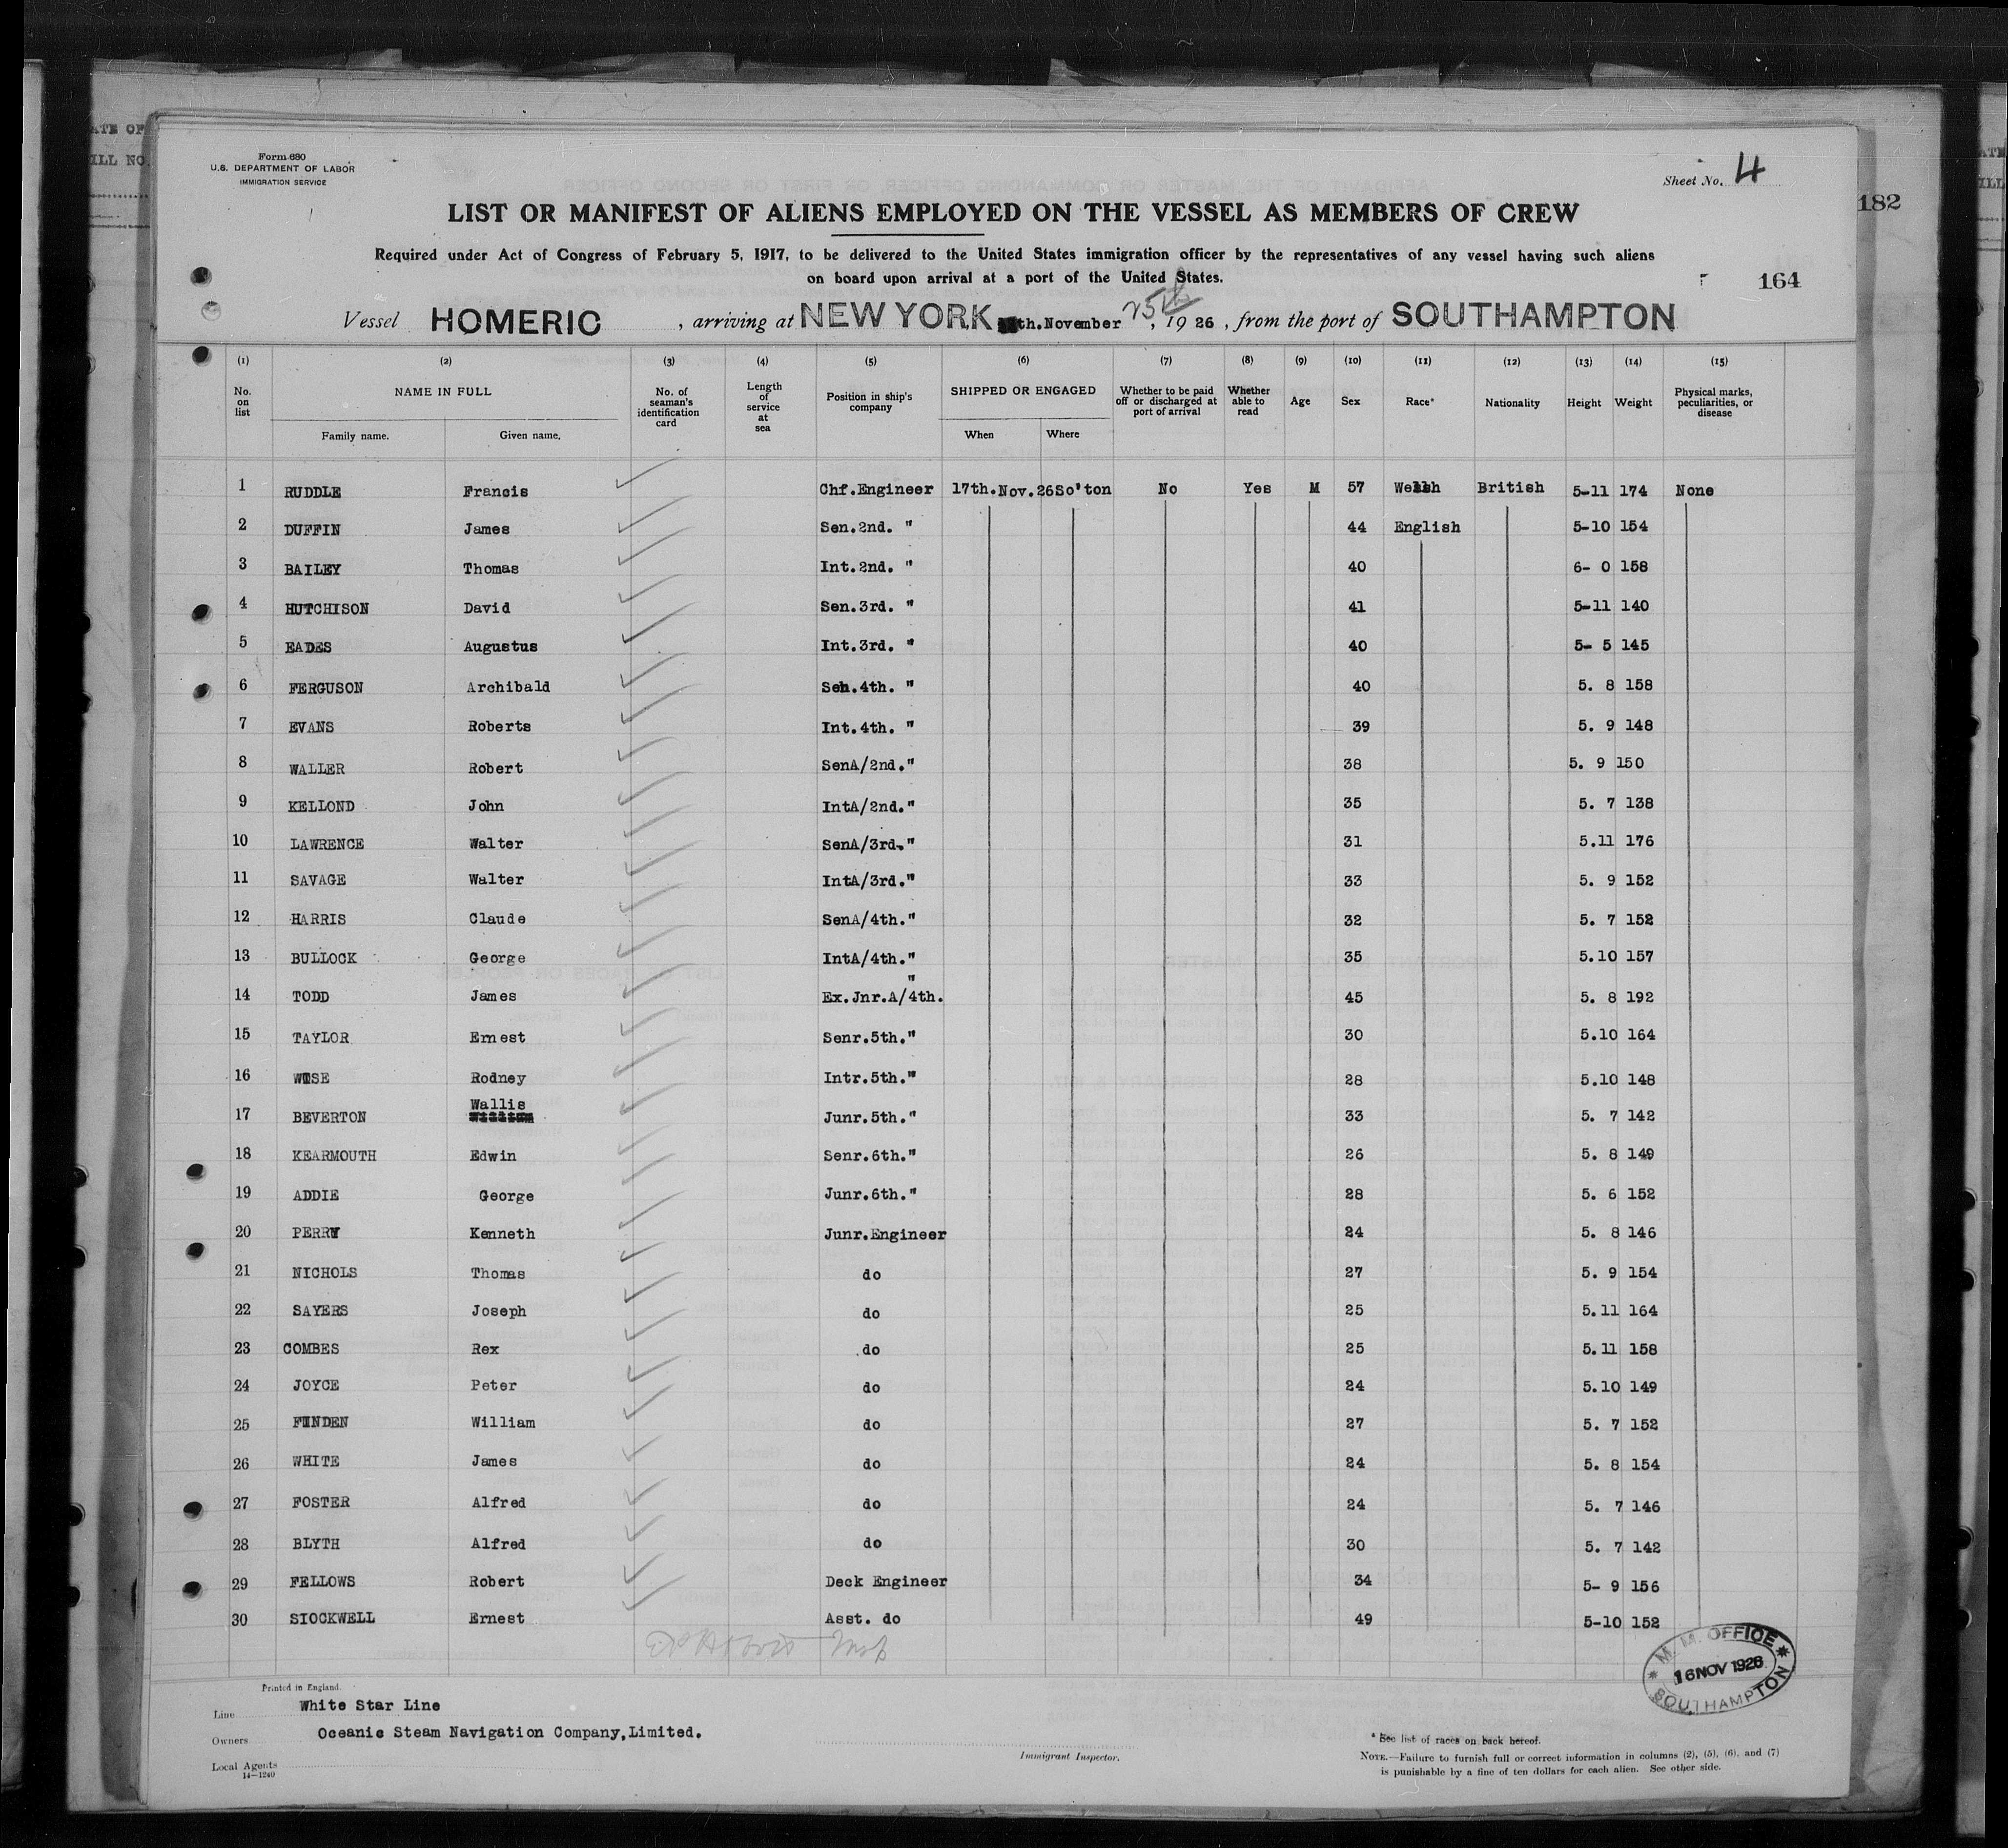 ATE OF
ILL NO.
Form 680
U.S. DEPARTMENT OF LABOR
IMMIGRATION SERVICE
Sheet No. 4
182
LIST OR MANIFEST OF ALIENS EMPLOYED ON THE VESSEL AS MEMBERS OF CREW
Required under Act of Congress of February 5, 1917, to be delivered to the United States immigration officer by the representatives of any vessel having such aliens
on board upon arrival at a port of the United States.
164
Vessel HOMERIC, arriving at NEW YORK th.November 25th, 1926, from the port of SOUTHAMPTON
(1) (2) (3) (4) (5) (6) (7) (8) (9) (10) (11) (12) (13) (14) (15)
No. on list NAME IN FULL No. of seaman's identification card Length of service at sea Position in ship's company SHIPPED OR ENGAGED Whether to be paid off or discharged at port of arrival Whether able to read Age Sex Race* Nationality Height Weight Physical marks, peculiarities, or disease
Family name. Given name. When Where
1 RUDDLE Francis Chf.Engineer 17th.Nov.26 So'ton No Yes M 57 Welsh British 5-11 174 None
2 DUFFIN James Sen.2nd. " 44 English 5-10 154
3 BAILEY Thomas Int.2nd. " 40 6- 0 158
4 HUTCHISON David Sen.3rd. " 41 5-11 140
5 EADES Augustus Int.3rd. " 40 5- 5 145
6 FERGUSON Archibald Sen.4th. " 40 5. 8 158
7 EVANS Roberts Int.4th. " 39 5. 9 148
8 WALLER Robert SenA/2nd." 38 5. 9 150
9 KELLOND John IntA/2nd." 35 5. 7 138
10 LAWRENCE Walter SenA/3rd." 31 5.11 176
11 SAVAGE Walter IntA/3rd." 33 5. 9 152
12 HARRIS Claude SenA/4th." 32 5. 7 152
13 BULLOCK George IntA/4th." 35 5.10 157
14 TODD James Ex.Jnr.A/4th. " 45 5. 8 192
15 TAYLOR Ernest Senr.5th." 30 5.10 164
16 WISE Rodney Intr.5th." 28 5.10 148
17 BEVERTON Wallis Junr.5th." 33 5. 7 142
18 KEARMOUTH Edwin Senr.6th." 26 5. 8 149
19 ADDIE George Junr.6th." 28 5. 6 152
20 PERRY Kenneth Junr.Engineer 24 5. 8 146
21 NICHOLS Thomas do 27 5. 9 154
22 SAYERS Joseph do 25 5.11 164
23 COMBES Rex do 25 5.11 158
24 JOYCE Peter do 24 5.10 149
25 FINDEN William do 27 5. 7 152
26 WHITE James do 24 5. 8 154
27 FOSTER Alfred do 24 5. 7 146
28 BLYTH Alfred do 30 5. 7 142
29 FELLOWS Robert Deck Engineer 34 5- 9 156
30 STOCKWELL Ernest Asst. do 49 5-10 152
M. M. OFFICE
16 NOV 1926
SOUTHAMPTON
Printed in England.
Line White Star Line
Owners Oceanic Steam Navigation Company,Limited.
Local Agents
14-1240
Immigrant Inspector.
* See list of races on back hereof.
NOTE.—Failure to furnish full or correct information in columns (2), (5), (6), and (7)
is punishable by a fine of ten dollars for each alien. See other side.